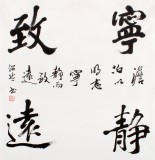 寧靜
致遠
澹
泊以
明志
寧
靜而
致
遠